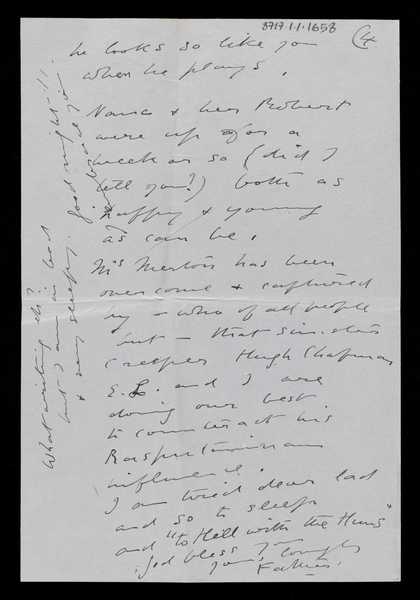 8717.1.1.1658
4
he looks so like you
when he plays.
Nana & her Robert
were up for a
week or so (did I
tell you?) both as
happy & young
as can be.
Mrs Merton has been
overcome & captured
by – who of all people
but – that sinister
creeper Hugh Chapman
E.L. and I are
doing our best
to counteract his
Rasputinian
influence.
I am tired dear lad
and so to sleep
and "to Hell with the Huns"
God bless you
your loving
Father.
What writing eh?
but I am in bed
& very sleepy. Good night!!